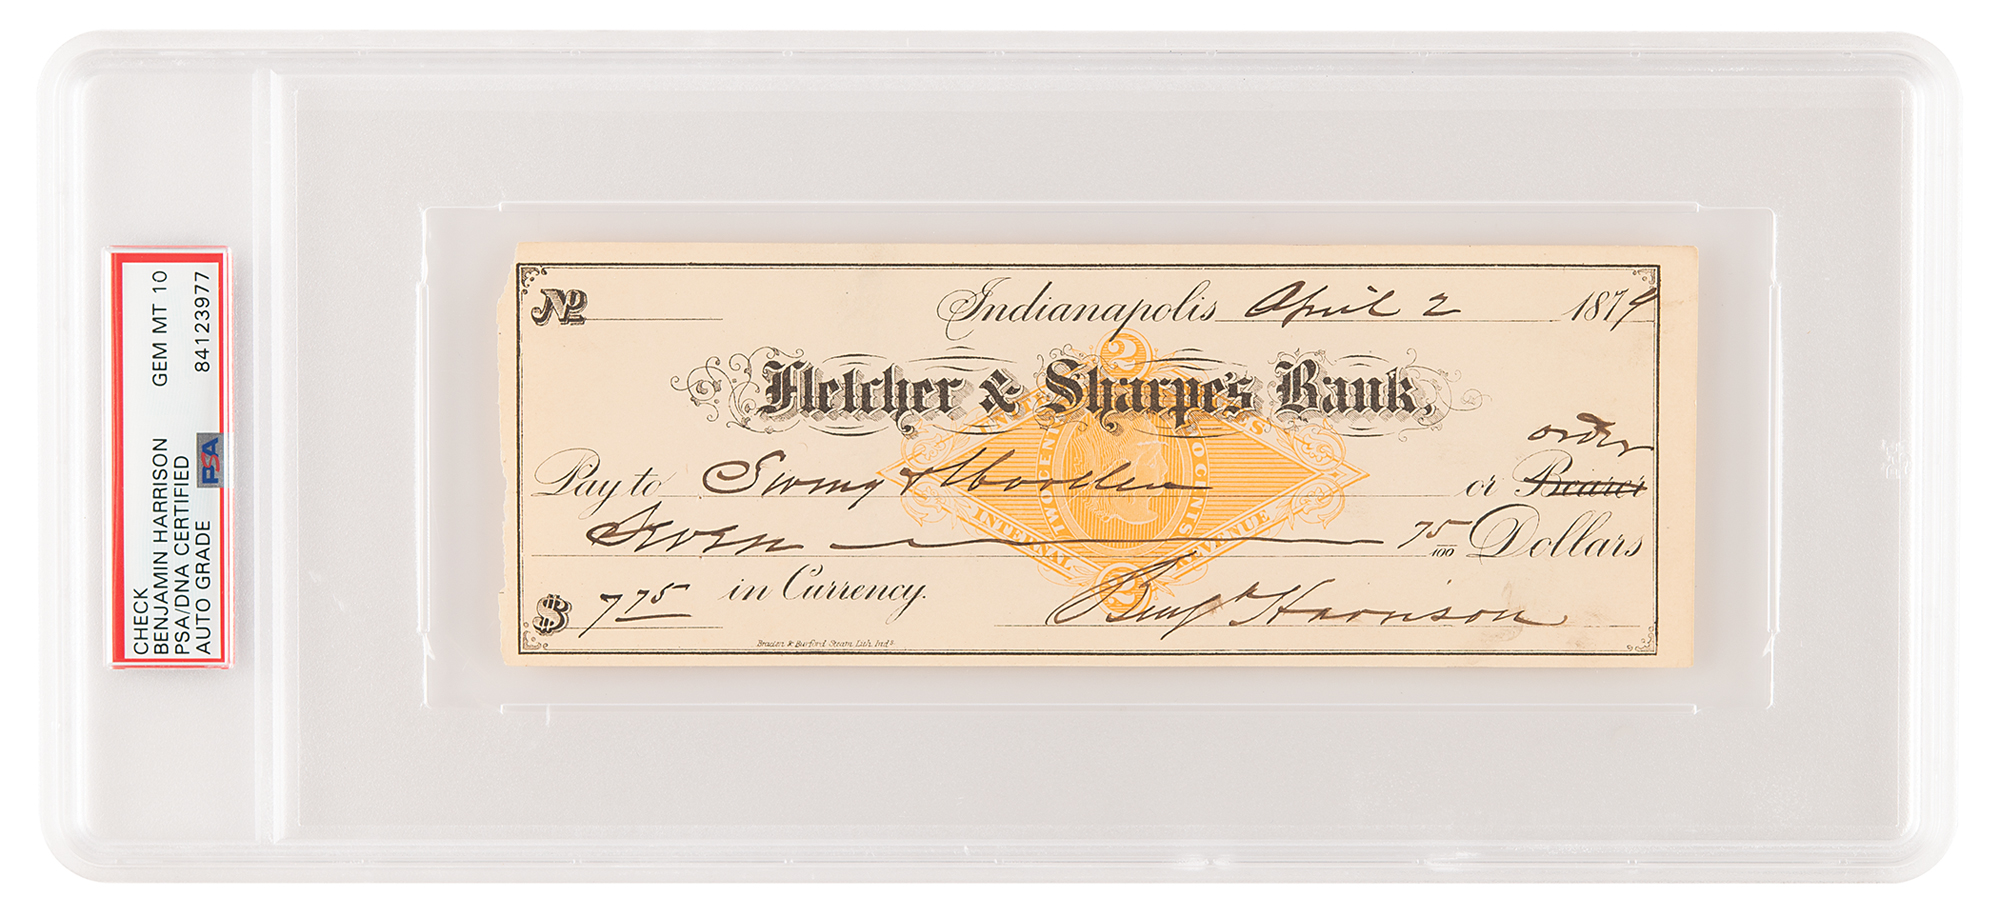 CHECK GEM MT 10
BENJAMIN HARRISON 84123977
PSA/DNA CERTIFIED
AUTO GRADE PSA
No Indianapolis April 2 1879
2
Fletcher & Sharpe's Bank,
order
Pay to & Woollen or Bearer
Seven 75/100 Dollars
INTERNAL REVENUE
TWO CENTS
2
$ 7 75 in Currency. Benj Harrison
Braden & Burford Steam Lith. Ind's